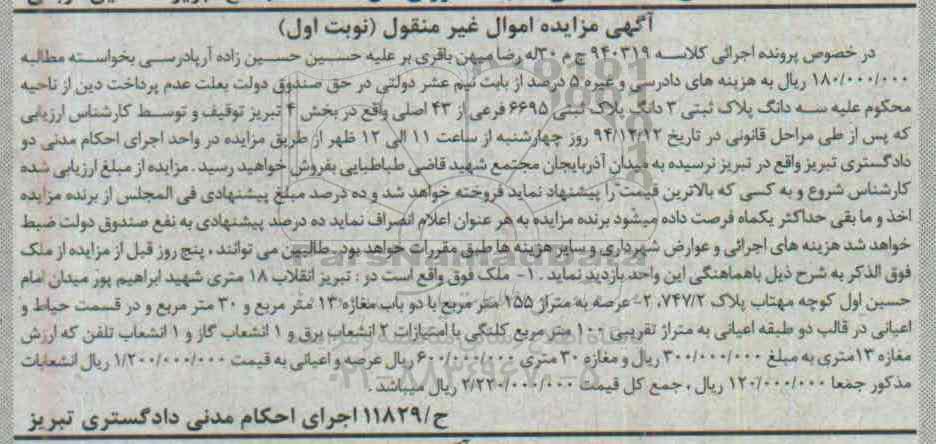 آگهی مزایده اموال غیر منقول (نوبت اول)
در خصوص پرونده اجرائی کلاسه ۹۴۰۳۱۹ ج م ۳۰ له رضا میهن باقری بر علیه حسین حسین زاده آرپادرسی بخواسته مطالبه
۱۸۰/۰۰۰/۰۰۰ ریال به هزینه های دادرسی و غیره ۵۰ درصد از بابت نیم عشر دولتی در حق صندوق دولت بعلت عدم پرداخت دین از ناحیه
محکوم علیه سه دانگ پلاک ثبتی ۳ دانگ پلاک ثبتی ۶۶۹۵ فرعی از ۴۳ اصلی واقع در بخش ۴ تبریز توقیف و توسط کارشناس ارزیابی
که پس از طی مراحل قانونی در تاریخ ۹۴/۱۲/۱۲ روز چهارشنبه از ساعت ۱۱ الی ۱۲ ظهر از طریق مزایده در واحد اجرای احکام مدنی دو
دادگستری تبریز واقع در تبریز نرسیده به میدان آذربایجان مجتمع شهید قاضی طباطبایی بفروش خواهید رسید . مزایده از مبلغ ارزیابی شده
کارشناس شروع و به کسی که بالاترین قیمت را پیشنهاد نماید فروخته خواهد شد و ده درصد مبلغ پیشنهادی فی المجلس از برنده مزایده
اخذ و ما بقی حداکثر یکماه فرصت داده میشود برنده مزایده به هر عنوان اعلام انصراف نماید ده درصد پیشنهادی به نفع صندوق دولت ضبط
خواهد شد هزینه های اجرائی و عوارض شهرداری و سایر هزینه ها طبق مقررات خواهد بود . طالبین می توانند ، پنج روز قبل از مزایده از ملک
فوق الذکر به شرح ذیل باهماهنگی این واحد بازدید نماید . ۱- ملک فوق واقع است در : تبریز انقلاب ۱۸ متری شهید ابراهیم پور میدان امام
حسین اول کوچه مهتاب پلاک ۲،۷۴۷/۲- عرصه به متراژ ۱۵۵ متر مربع با دو باب مغازه ۱۳ متر مربع و ۳۰ متر مربع و در قسمت حیاط و
اعیانی در قالب دو طبقه اعیانی به متراژ تقریبی ۱۰۰ متر مربع کلنگی با امتیازات ۲ انشعاب برق و ۱ انشعاب گاز و ۱ انشعاب تلفن که ارزش
مغازه ۱۳متری به مبلغ ۳۰۰/۰۰۰/۰۰۰ ریال و مغازه ۳۰ متری ۶۰۰/۰۰۰/۰۰۰ ریال عرصه و اعیانی به قیمت ۱/۲۰۰/۰۰۰/۰۰۰ ریال انشعابات
مذکور جمعا ۱۲۰/۰۰۰/۰۰۰ ریال ، جمع کل قیمت ۲/۲۲۰/۰۰۰/۰۰۰ ریال میباشد .
ح/۱۱۸۲۹ اجرای احکام مدنی دادگستری تبریز